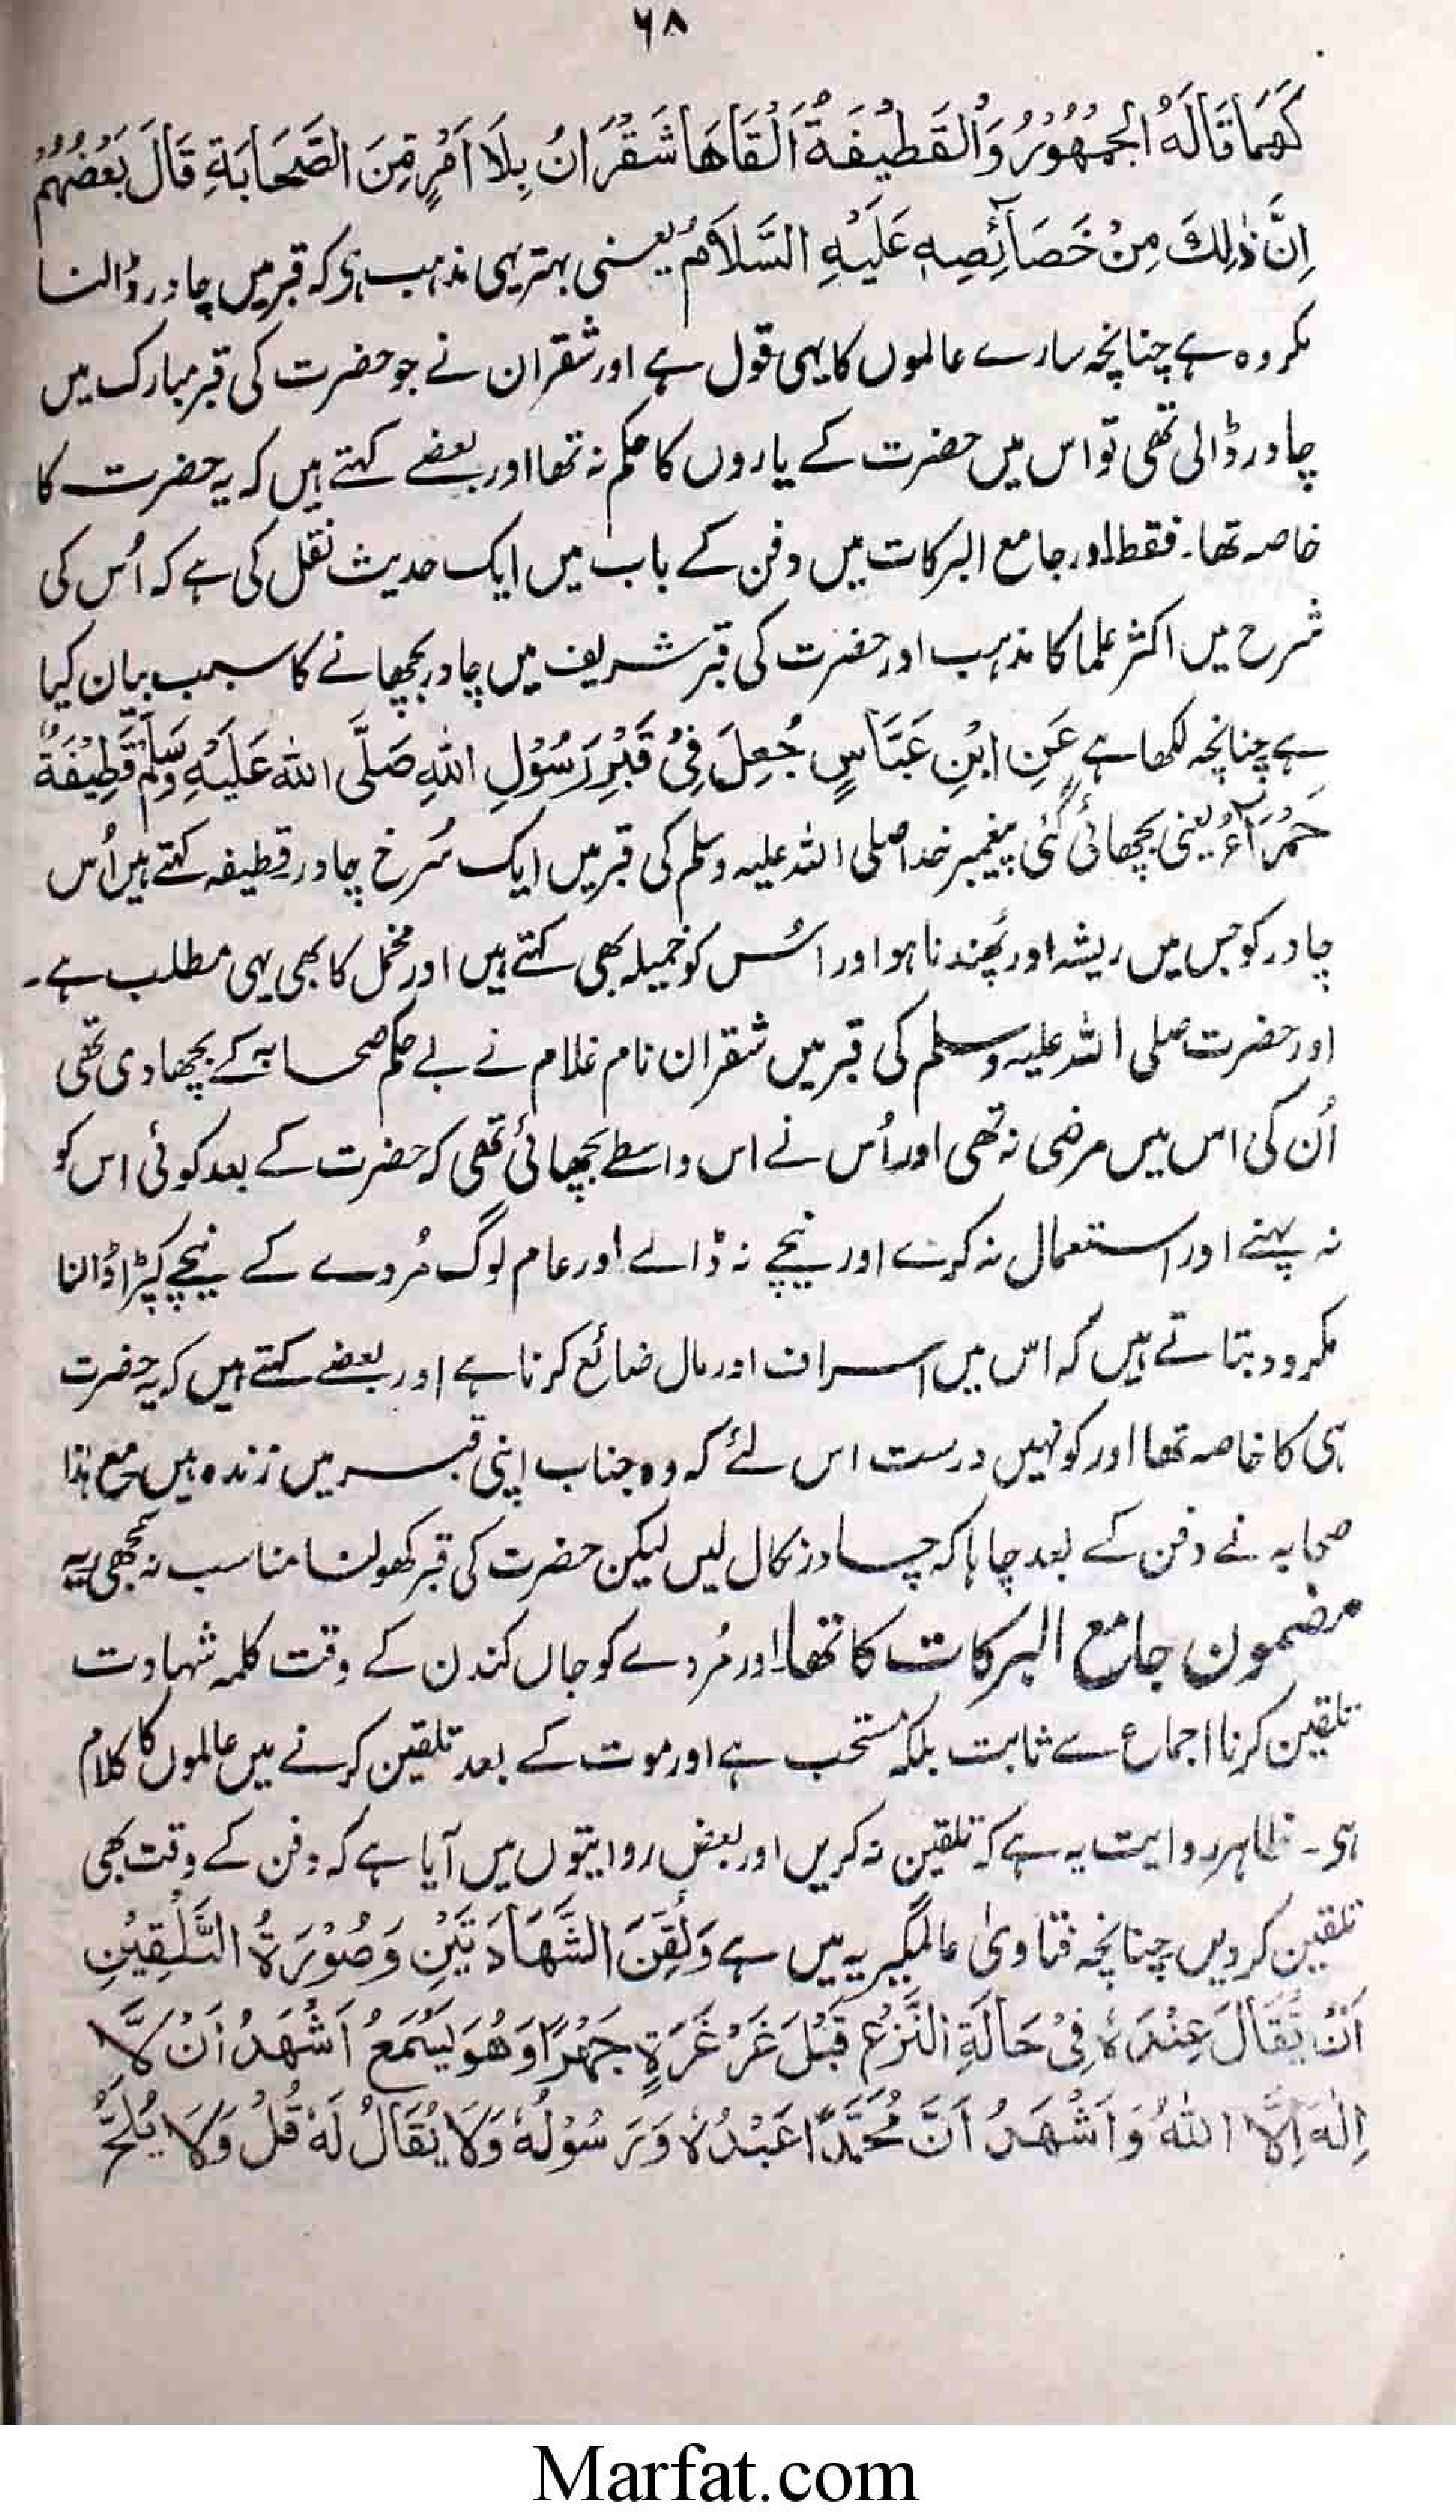 ۶۸
كَمَا قَالَهُ الْجُمْهُوْرُ وَالْقَطِيْفَةُ اَلْقَاهَا شَقْرَانُ بِلَا اَمْرٍ مِّنَ الصَّحَابَةِ قَالَ بَعْضُهُمْ
اِنَّ ذٰلِكَ مِنْ خَصَآئِصِهٖ عَلَيْهِ السَّلَامُ یعنی بہتر یہی مذہب ہی کہ قبر میں چادر ڈالنا
مکروہ ہے چنانچہ سارے عالموں کا یہی قول ہے اور شقران نے جو حضرت کی قبر مبارک میں
چادر ڈالی تھی تو اس میں حضرت کے یاروں کا حکم نہ تھا اور بعضے کہتے ہیں کہ یہ حضرت کا
خاصہ تھا۔ فقط اور جامع البرکات میں دفن کے باب میں ایک حدیث نقل کی ہے کہ اُس کی
شرح میں اکثر علما کا مذہب اور حضرت کی قبر شریف میں چادر بچھانے کا سبب بیان کیا
ہے چنانچہ لکھا ہے عَنِ ابْنِ عَبَّاسٍ جُعِلَ فِیْ قَبْرِ رَسُوْلِ اللهِ صَلَّى اللهُ عَلَيْهِ وَسَلَّمَ قَطِيْفَةٌ
حَمْرَآءُ یعنی بچھائی گئی پیغمبر خدا صلی اللہ علیہ وسلم کی قبر میں ایک سُرخ چادر قطیفہ کہتے ہیں اُس
چادر کو جس میں ریشہ اور پُھندنا ہو اور اُس کو خمیلہ بھی کہتے ہیں اور مخمل کا بھی یہی مطلب ہے۔
اور حضرت صلی اللہ علیہ وسلم کی قبر میں شقران نام غلام نے بے حکم صحابہ کے بچھا دی تھی
اُن کی اس میں مرضی نہ تھی اور اُس نے اس واسطے بچھائی تھی کہ حضرت کے بعد کوئی اس کو
نہ پہنے اور استعمال نہ کرے اور نیچے نہ ڈالے اور عام لوگ مُردے کے نیچے کپڑا ڈالنا
مکروہ بتاتے ہیں کہ اس میں اسراف اور مال ضائع کرنا ہے اور بعضے کہتے ہیں کہ یہ حضرت
ہی کا خاصہ تھا اور کو نہیں درست اس لئے کہ وہ جناب اپنی قبر میں زندہ ہیں مع ہٰذا
صحابہ نے دفن کے بعد چاہا کہ چادر نکال لیں لیکن حضرت کی قبر کھولنا مناسب نہ سمجھی یہ
مضمون جامع البرکات کا تھا اور مُردے کو جاں کندن کے وقت کلمہ شہادت
تلقین کرنا اجماع سے ثابت بلکہ مستحب ہے اور موت کے بعد تلقین کرنے میں عالموں کا کلام
ہی۔ ظاہر روایت یہ ہے کہ تلقین نہ کریں اور بعض روایتوں میں آیا ہے کہ دفن کے وقت بھی
تلقین کر دیں چنانچہ فتاویٰ عالمگیریہ میں ہے وَلُقِّنَ الشَّهَادَتَيْنِ وَصُوْرَةُ التَّلْقِيْنِ
اَنْ يُّقَالَ عِنْدَهٗ فِیْ حَالَةِ النَّزْعِ قَبْلَ غَرْغَرَةٍ جَهْرًا وَهُوَ يَسْمَعُ اَشْهَدُ اَنْ لَّا
اِلٰهَ اِلَّا اللهُ وَاَشْهَدُ اَنَّ مُحَمَّدًا عَبْدُهٗ وَرَسُوْلُهٗ وَلَا يُقَالُ لَهٗ قُلْ وَلَا يُلَحُّ
Marfat.com